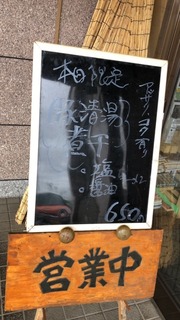 本日限定
アッサリ コク有り
清湯
煮干
・塩
・醤油
650円
営業中